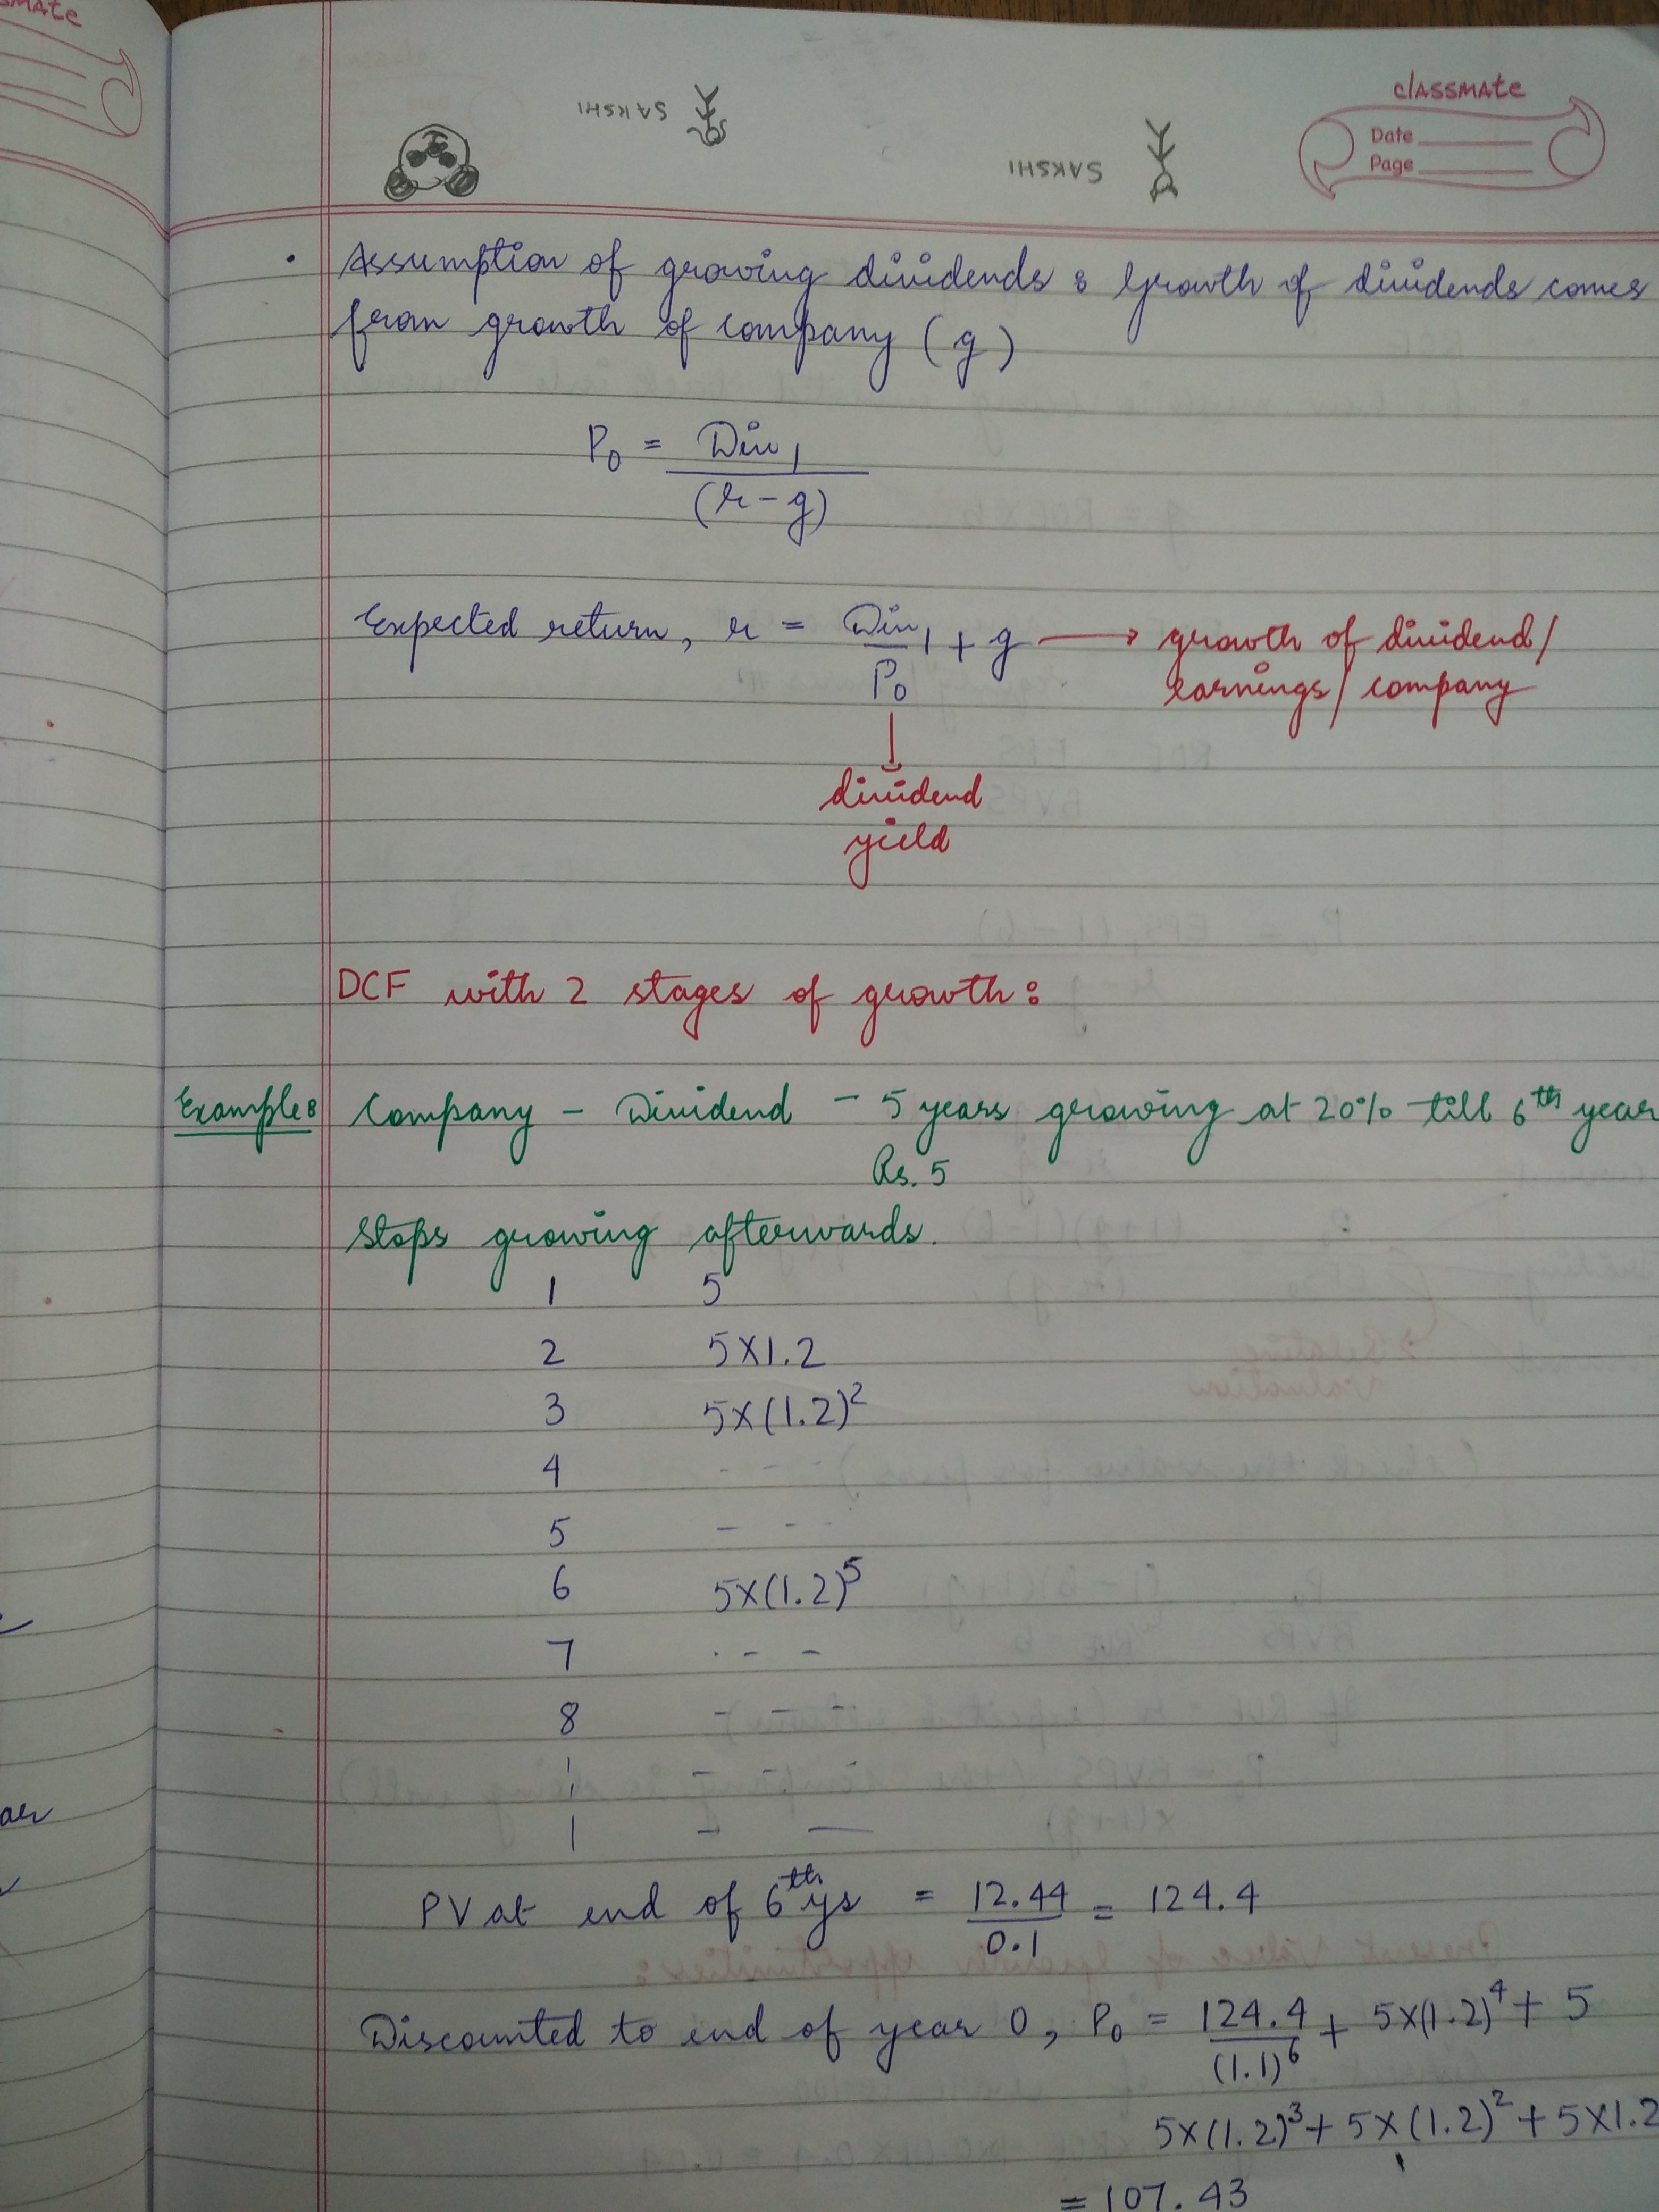 classmate
Date
Page
SAKSHI
SAKSHI
• Assumption of growing dividends : Growth of dividends comes
from growth of company (g)
P₀ = Div₁
(r-g)
Expected return, r = Div₁ + g → growth of dividend/
P₀ earnings/company
dividend
yield
DCF with 2 stages of growth:
Example: Company - Dividend - 5 years growing at 20% till 6th year
Rs. 5
Stops growing afterwards.
1 5
2 5×1.2
3 5×(1.2)²
4 - - -
5 - - -
6 5×(1.2)⁵
7 - - -
8 - - -
PV at end of 6th ys = 12.44 = 124.4
0.1
Discounted to end of year 0, P₀ = 124.4 + 5×(1.2)⁴ + 5
(1.1)⁶
5×(1.2)³ + 5×(1.2)² + 5×1.2
= 107.43